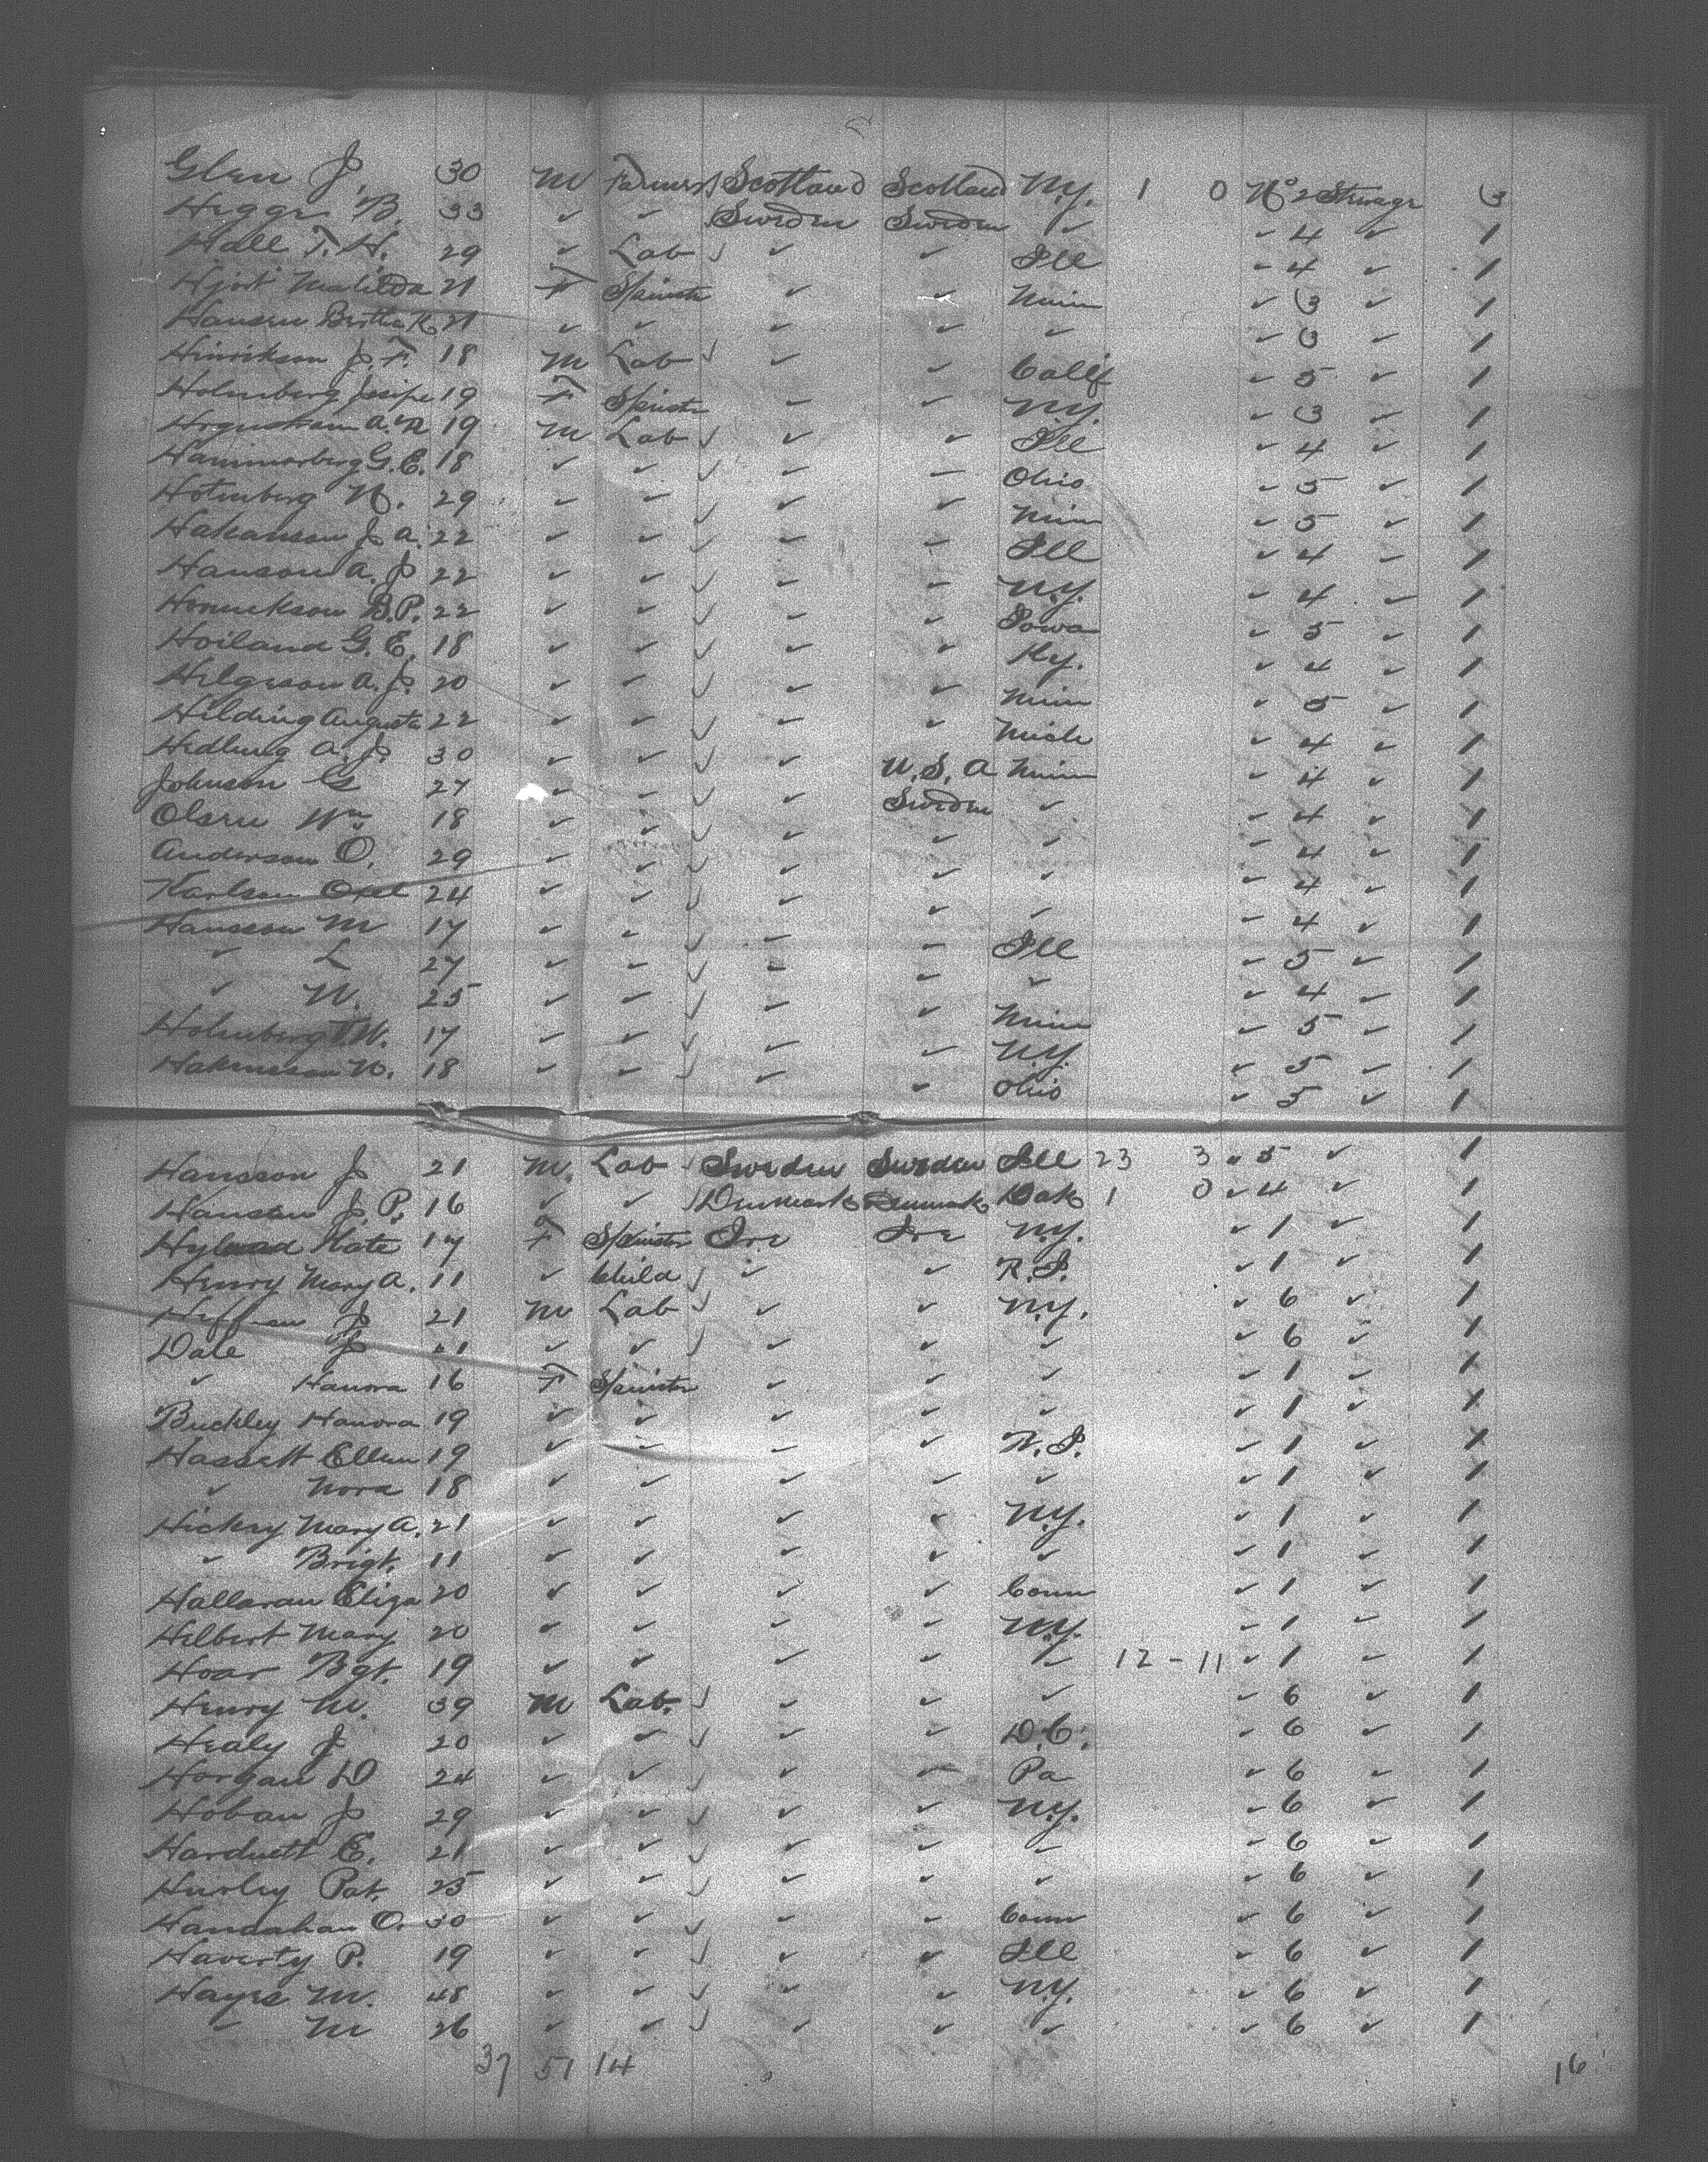 Glen J. 30 M Farmer Scotland Scotland N.Y. 1 0 No 2 Steerage 3
Hegge B. 33 ✓ ✓ Sweden Sweden ✓ ✓ 4 ✓ 1
Hall T. H. 29 ✓ Lab ✓ ✓ ✓ Ill ✓ 4 ✓ 1
Hjort Matilda 21 F Spinster ✓ ✓ Minn ✓ 3 ✓ 1
Hansen Bertha K. 21 ✓ ✓ ✓ ✓ ✓ ✓ 3 ✓ 1
Hinrikson J. F. 18 M Lab ✓ ✓ ✓ Calif ✓ 5 ✓ 1
Holmberg 19 F Spinster ✓ ✓ N.Y. ✓ 3 ✓ 1
A. N 19 M Lab ✓ ✓ ✓ Ill ✓ 4 ✓ 1
Hammarberg G. E. 18 ✓ ✓ ✓ ✓ ✓ Ohio ✓ 5 ✓ 1
Holmberg N. 29 ✓ ✓ ✓ ✓ ✓ Minn ✓ 5 ✓ 1
Hakanson J. A. 22 ✓ ✓ ✓ ✓ ✓ Ill ✓ 4 ✓ 1
Hanson A. J 22 ✓ ✓ ✓ ✓ ✓ N.Y. ✓ 4 ✓ 1
B. P. 22 ✓ ✓ ✓ ✓ ✓ Iowa ✓ 5 ✓ 1
Hoiland G. E. 18 ✓ ✓ ✓ ✓ ✓ Ky. ✓ 4 ✓ 1
Helgeson A. J. 20 ✓ ✓ ✓ ✓ ✓ Minn ✓ 5 ✓ 1
Hilding Augusta 22 ✓ ✓ ✓ ✓ ✓ Mich ✓ 4 ✓ 1
Hedlung A. J. 30 ✓ ✓ ✓ ✓ U.S.A Minn ✓ 4 ✓ 1
Johnson G 27 ✓ ✓ ✓ ✓ Sweden ✓ ✓ 4 ✓ 1
Olsen Wm 18 ✓ ✓ ✓ ✓ ✓ ✓ ✓ 4 ✓ 1
Anderson O. 29 ✓ ✓ ✓ ✓ ✓ ✓ ✓ 4 ✓ 1
Karlson 24 ✓ ✓ ✓ ✓ ✓ ✓ ✓ 4 ✓ 1
Hansson M 17 ✓ ✓ ✓ ✓ ✓ Ill ✓ 5 ✓ 1
✓ L 27 ✓ ✓ ✓ ✓ ✓ ✓ ✓ 4 ✓ 1
✓ N. 25 ✓ ✓ ✓ ✓ ✓ Minn ✓ 5 ✓ 1
Holmberg W. 17 ✓ ✓ ✓ ✓ ✓ N.Y. ✓ 5 ✓ 1
Hakansson N. 18 ✓ ✓ ✓ ✓ ✓ Ohio ✓ 5 ✓ 1
Hansson J 21 M. Lab ✓ Sweden Sweden Ill 23 3 ✓ 5 ✓ 1
Hansen J. P. 16 ✓ ✓ Denmark Denmark Dak 1 0 ✓ 4 ✓ 1
Hyland Kate 17 F Spinster Ire Ire N.Y. ✓ 1 ✓ 1
Henry Mary A. 11 ✓ Child ✓ ✓ ✓ R.I. ✓ 1 ✓ 1
J 21 M Lab ✓ ✓ ✓ N.Y. ✓ 6 ✓ 1
Dale J ✓ ✓ ✓ ✓ ✓ ✓ ✓ 6 ✓ 1
✓ Hanora 16 F Spinster ✓ ✓ ✓ ✓ 1 ✓ 1
Buckley Hanora 19 ✓ ✓ ✓ ✓ ✓ ✓ 1 ✓ 1
Hassett Ellen 19 ✓ ✓ ✓ ✓ ✓ 1 ✓ 1
✓ Nora 18 ✓ ✓ ✓ ✓ ✓ ✓ 1 ✓ 1
Hickey Mary A. 21 ✓ ✓ ✓ ✓ N.Y. ✓ 1 ✓ 1
✓ Brigt. 11 ✓ ✓ ✓ ✓ ✓ ✓ 1 ✓ 1
Hallaran Eliza 20 ✓ ✓ ✓ ✓ Conn ✓ 1 ✓ 1
Helbert Mary 20 ✓ ✓ ✓ ✓ N.Y. ✓ 1 ✓ 1
Hoar Bgt. 19 ✓ ✓ ✓ ✓ ✓ 12 - 11 ✓ 1 ✓ 1
Henry M. 39 M Lab. ✓ ✓ ✓ ✓ ✓ 6 ✓ 1
Healy J 20 ✓ ✓ ✓ ✓ ✓ D.C. ✓ 6 ✓ 1
Horgan D 24 ✓ ✓ ✓ ✓ ✓ Pa ✓ 6 ✓ 1
Hoban J 29 ✓ ✓ ✓ ✓ ✓ N.Y. ✓ 6 ✓ 1
Harduett E. 21 ✓ ✓ ✓ ✓ ✓ ✓ ✓ 6 ✓ 1
Hurley Pat. 25 ✓ ✓ ✓ ✓ ✓ ✓ ✓ 6 ✓ 1
Handahan O. 30 ✓ ✓ ✓ ✓ ✓ Conn ✓ 6 ✓ 1
Haverty P. 19 ✓ ✓ ✓ ✓ ✓ Ill ✓ 6 ✓ 1
Hayes M. 48 ✓ ✓ ✓ ✓ ✓ N.Y. ✓ 6 ✓ 1
✓ M 26 ✓ ✓ ✓ ✓ ✓ ✓ ✓ 6 ✓ 1
37 51 14 16